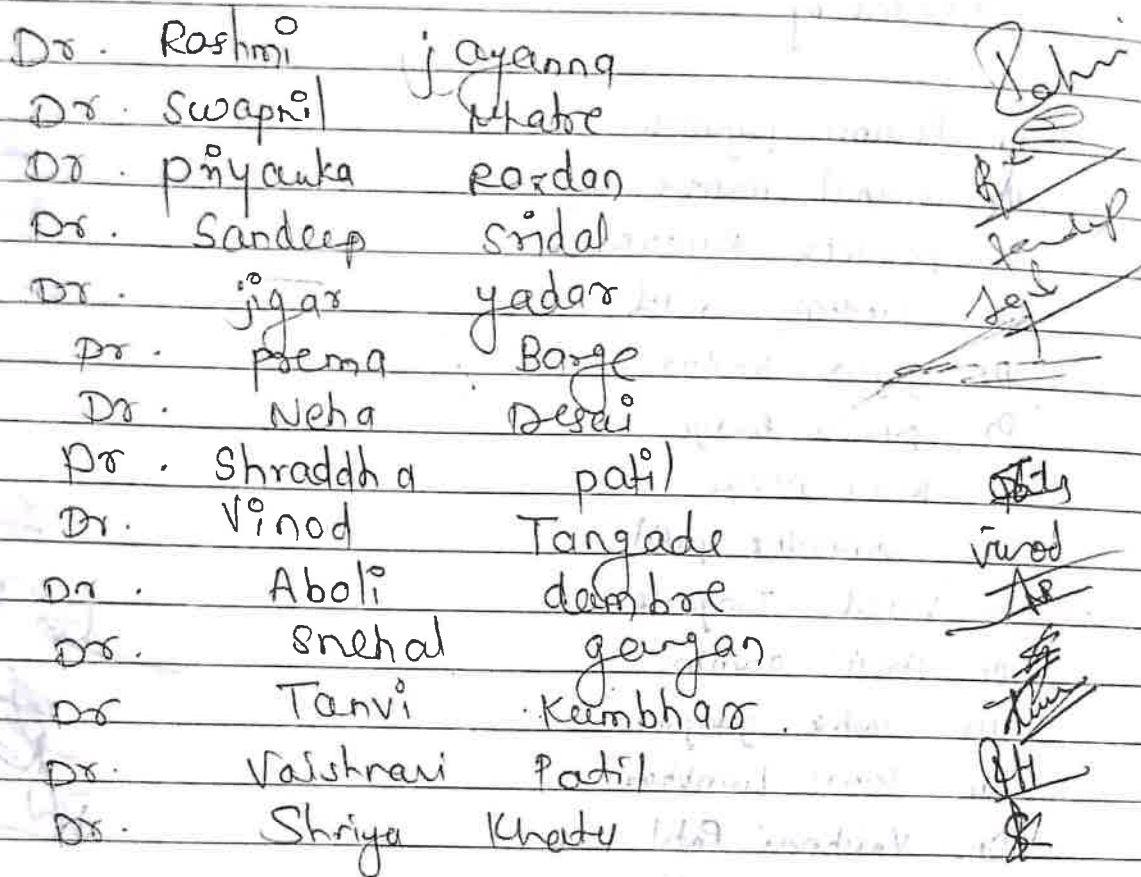 Dr. Rashmi jayanna
Dr. Swapnil Mhatre
Dr. Priyanka Razdan
Dr. Sandeep Sridal Sandeep
Dr. jigar yadav
Dr. prema Barge
Dr. Neha Desai
Dr. Shraddha patil
Dr. Vinod Tangade vinod
Dr. Aboli dambre
Dr. snehal gangan
Dr Tanvi Kumbhar
Dr. Vaishnavi Patil
Dr. Shriya Khatu